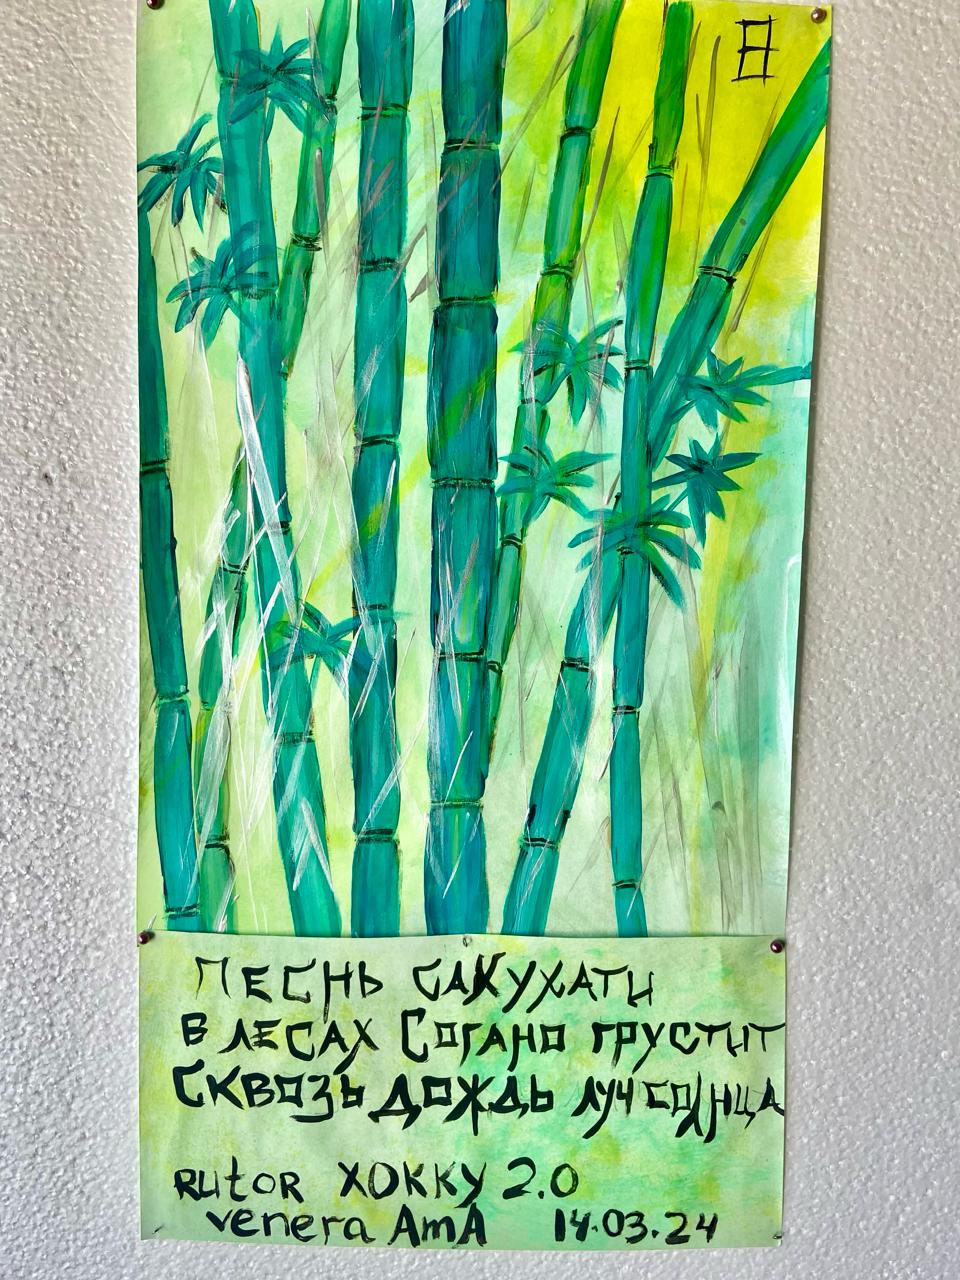 日
ПЕСНЬ САКУХАТИ
В ЛЕСАХ СОГАНО ГРУСТИТ
СКВОЗЬ ДОЖДЬ ЛУЧ СОЛНЦА
RUtOR ХОККУ 2.0
venera AmA 14.03.24